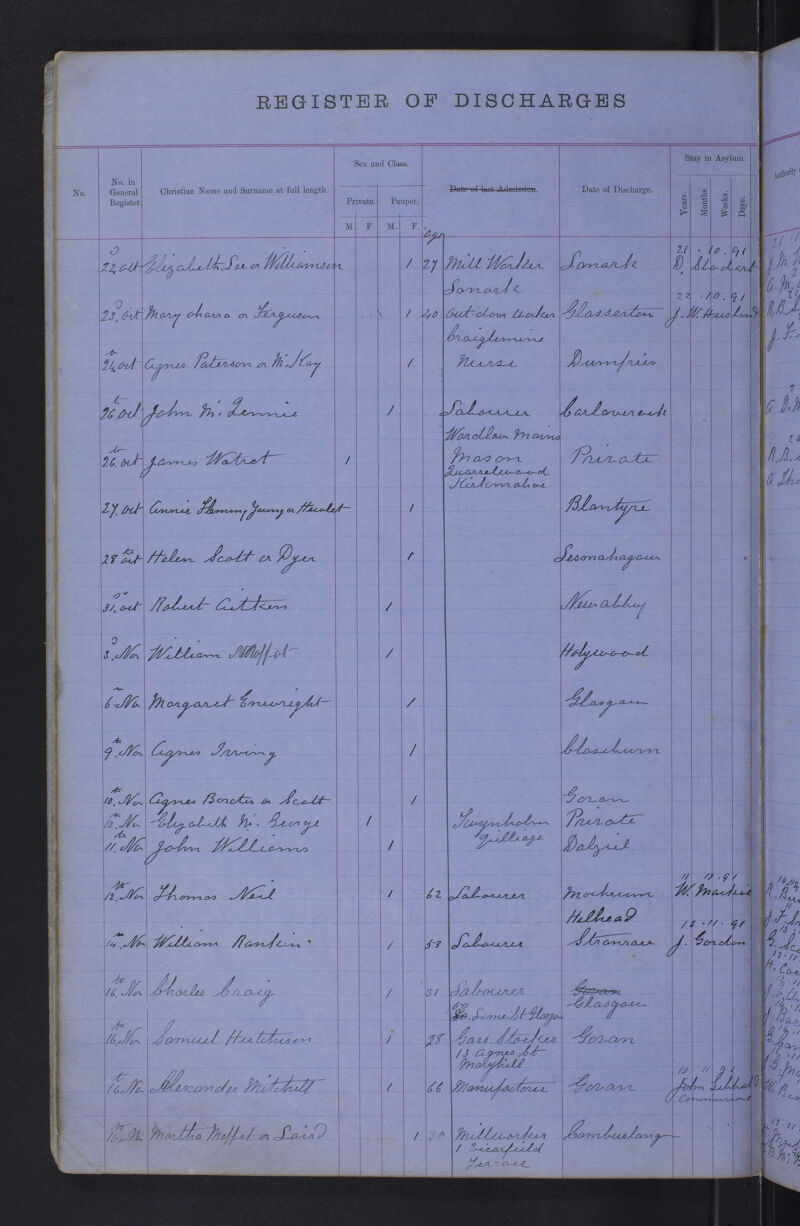 REGISTER OF DISCHARGES
No.
No. in General Register.
Christian Name and Surname at full length.
Sex and Class.
Private. Pauper.
M. F. M. F.
Date of last Admission.
Date of Discharge.
Stay in Asylum.
Years. Months. Weeks. Days.
age
21 . 10 . 91
22 Oct Elizabeth Lee or Williamson 1 27 Mill Worker Lanark D. Stodart
Lanark 22 . 10 . 91
23 Oct Mary ohara or Ferguson 1 40 out-door worker Glasserton J. W. Husband
Craiglemine
24 Oct Agnes Paterson or McKay 1 Nurse Dumfries
26 Oct John Mc Lennie 1 Labourer Carlaverock
Wardlaw Mains
26 Oct James Watret 1 Mason Private
Quarrelwood
Kirkmahoe
27. Oct Annie Fleming Young or 1 Blantyre
28 Oct Helen Scott or Dyer 1 Lesmahagow
31. Oct Robert Aitken 1 Newabbey
3. Nov William Moffat 1 Holywood
6 Nov Margaret Enwright 1 Glasgow
9. Nov Agnes Irving 1 Closeburn
10. Nov Agnes or Scott 1 Govan
10. Nov Elizabeth Mc. George 1 Twynholm Private
11. Nov John Williams 1 Dalziel
11 11 . 91
12. Nov Thomas Neil 1 62 Labourer Mochrum W. Mackie
Hilhead 13 . 11 . 91
14. Nov William Rankin 1 53 Labourer Stranraer J. Gordon
16. Nov Charles Craig 1 31 Labourer Govan
60 Lime St Glasgow Glasgow
16. Nov Samuel Hutchison 1 28 Gass Stoker Govan
13 Agnes St
Maryhill 10 11 91
16. Nov Alexander Mitchell 1 66 Manufacturer Govan John
16. Nov Martha Moffat or Laird 1 30 Millworker Cambuslang
1 Vicarfield
Terrace